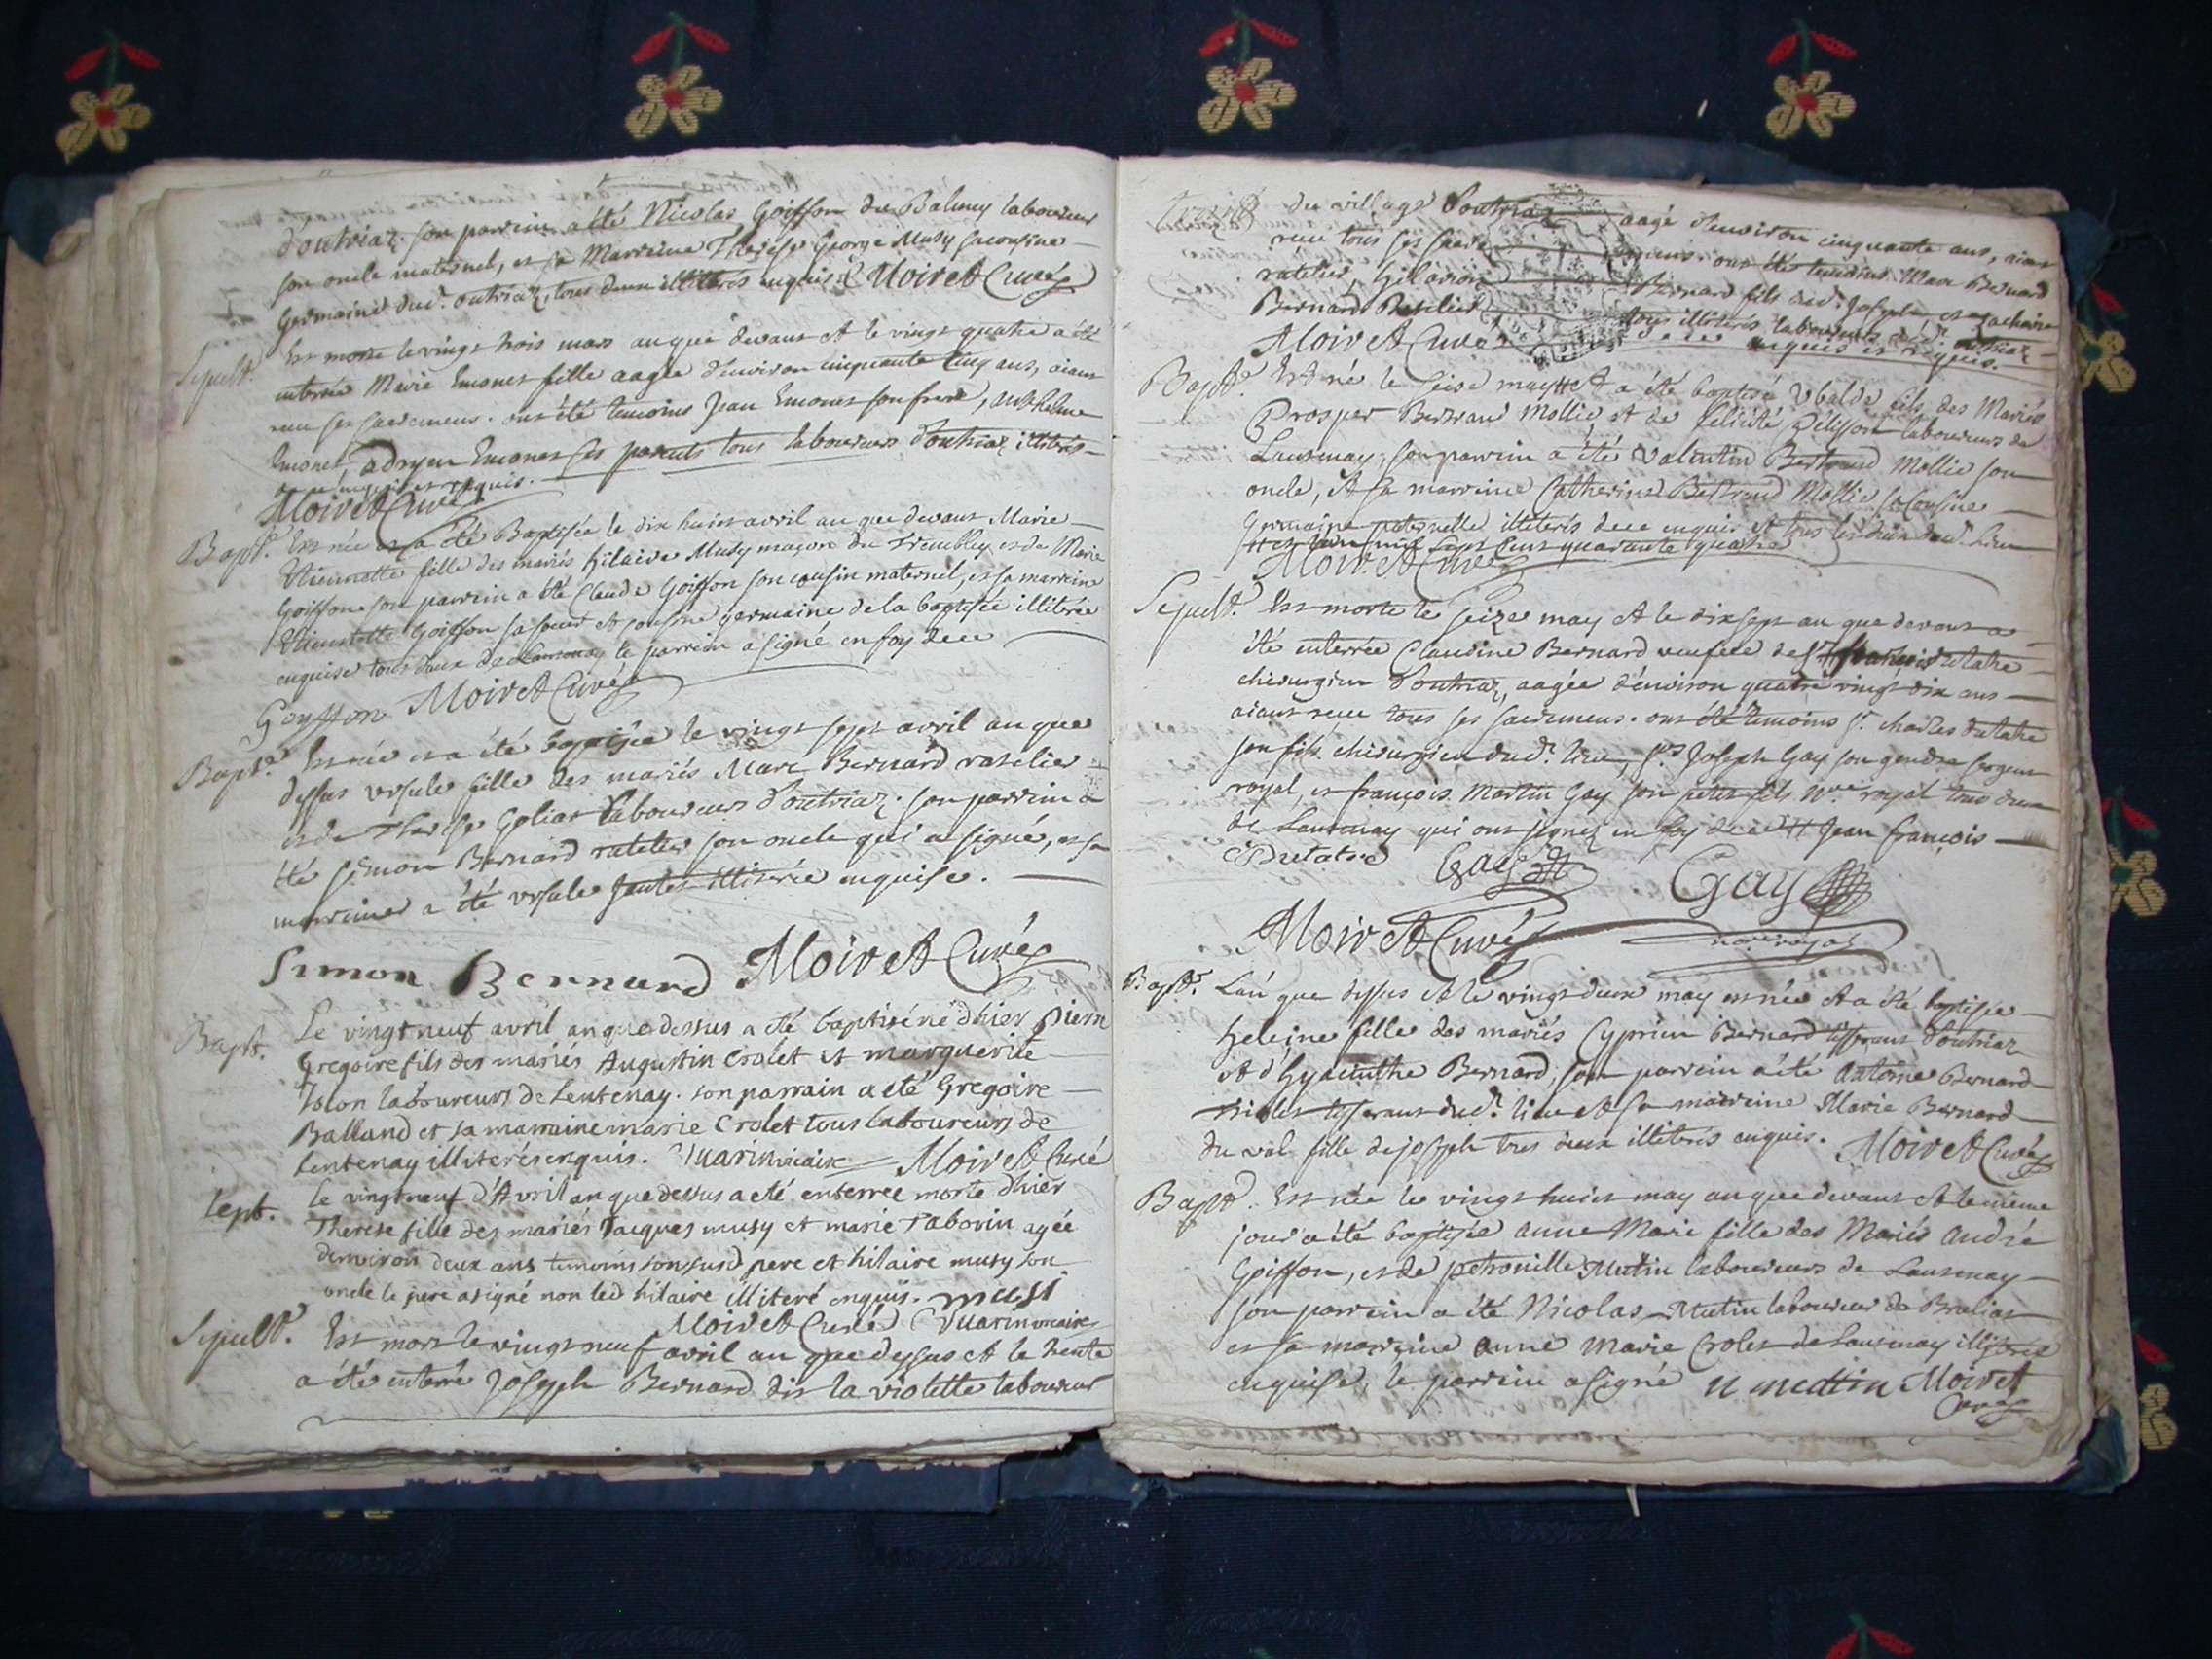 d'outriaz. son parrein a été Nicolas Goiffon du Balmey laboureur
son oncle maternel, et sa Marreine Therese George Musy sa cousine
Germaine dud. outriaz, tous deux illiterés enquis. Moiret Curé
Sepult. Est morte le vingt trois mars an que devant et le vingt quatre a été
enterrée Marie Emonet fille aagée d'environ cinquante cinq ans, aiant
receu ses sacremens. ont été temoins Jean Emonet son frere, anthelme
Emonet, adryen Emonet ses parents tous laboureurs d'outriaz illiterés
de ce enquis et requis.
Moiret Curé
Bapt. Est née et a été Baptisée le dix huit avril an que devant Marie
Thiennette fille des mariés hilaire Musy maçon du Trembley et de Marie
Goiffon. son parrein a été Claude Goiffon son cousin maternel, et sa marreine
Thiennette Goiffon sa soeur et cousine germaine de la baptisée illiterée
enquise tous deux de Lantenay le parrein a signé en foy de ce
Goyffon Moiret Curé
Bapt. Est née et a été baptisée le vingt sept avril an que
dessus ursule fille des mariés Marc Bernard ratelier
et de Therese Goliat laboureurs d'outriaz. son parrein a
été Simon Bernard ratelier son oncle qui a signé, et sa
marreine a été ursule illiterée enquise.
Simon Bernard Moiret Curé
Bapt. Le vingt neuf avril an que dessus a eté baptisé né d'hier pierre
Gregoire fils des mariés Augustin Crolet et marguerite
laboureurs de Lentenay. son parrain a eté Gregoire
Balland et sa marraine marie Crolet tous laboureurs de
Lentenay illiterés enquis. Vuarin vicaire Moiret Curé
sept. Le vingt neuf d'Avril an que dessus a eté enterrée morte d'hier
Therese fille des mariés Jacques musy et marie Tabouin agée
d'environ deux ans temoins son susd pere et hilaire musy son
oncle le pere a signé non led hilaire illiteré enquis. musi
Moiret Curé Vuarin vicaire
Sepult. Est mort le vingt neuf avril an que dessus et le trente
a été enterré Joseph Bernard dit la violette laboureur
du village d'outriaz aagé d'environ cinquante ans, aiant
receu tous ses sacremens. ont été temoins Marc Bernard
ratelier, hilarion Bernard fils dud. Joseph et Zacharie
Bernard Ratelier tous illiterés laboureurs dud. outriaz
Moiret Curé de ce enquis et requis.
Bapt. Est né le seize may et a été baptisé Ubalde fils des Mariés
Prosper Bertrand Mollie, et de felicité Pélisson laboureurs de
Lantenay, son parrein a été Valentin Bertrand Mollie son
oncle, et sa marreine Catherine Bertrand Mollie sa cousine
Germaine paternelle illiterés de ce enquis et tous les deux dud. lieu
# et l'an mil sept cent quarante quatre
Moiret Curé
Sepult. Est morte le seize may et le dix sept an que devant a
été enterrée Claudine Bernard veufve de Sr. # dutatre
chirurgien d'outriaz, aagée d'environ quatre vingt dix ans
aiant receu tous ses sacremens. ont été temoins Sr. charles dutatre
son fils chirurgien dud. lieu, Sr. Joseph Gay son gendre sergent
royal, et françois Martin Gay son petit fils Nre. royal tous deux
de Lantenay qui ont signez en foy de ce # Jean françois
CDutatre Gay Gay
Moiret Curé nore royal
Bapt. L'an que dessus et le vingt deux may est née et a été baptisée
heleine fille des mariés Cyprien Bernard tisserant d'outriaz
et d'hyacinthe Bernard; son parrein a été Antoine Bernard
tisserant dud. lieu et sa marreine Marie Bernard
du val fille de joseph tous deux illiterés enquis. Moiret Curé
Bapt. Est née le vingt huit may an que devant et le même
jour a été baptisée anne Marie fille des Mariés André
Goiffon, et de petronille Mutin laboureurs de Lantenay
son parrein a été Nicolas Mutin laboureur de Brulias
et sa marreine anne Marie Crolet de Lantenay illiterée
enquise, le parrein a signé N mutin Moiret
Curé